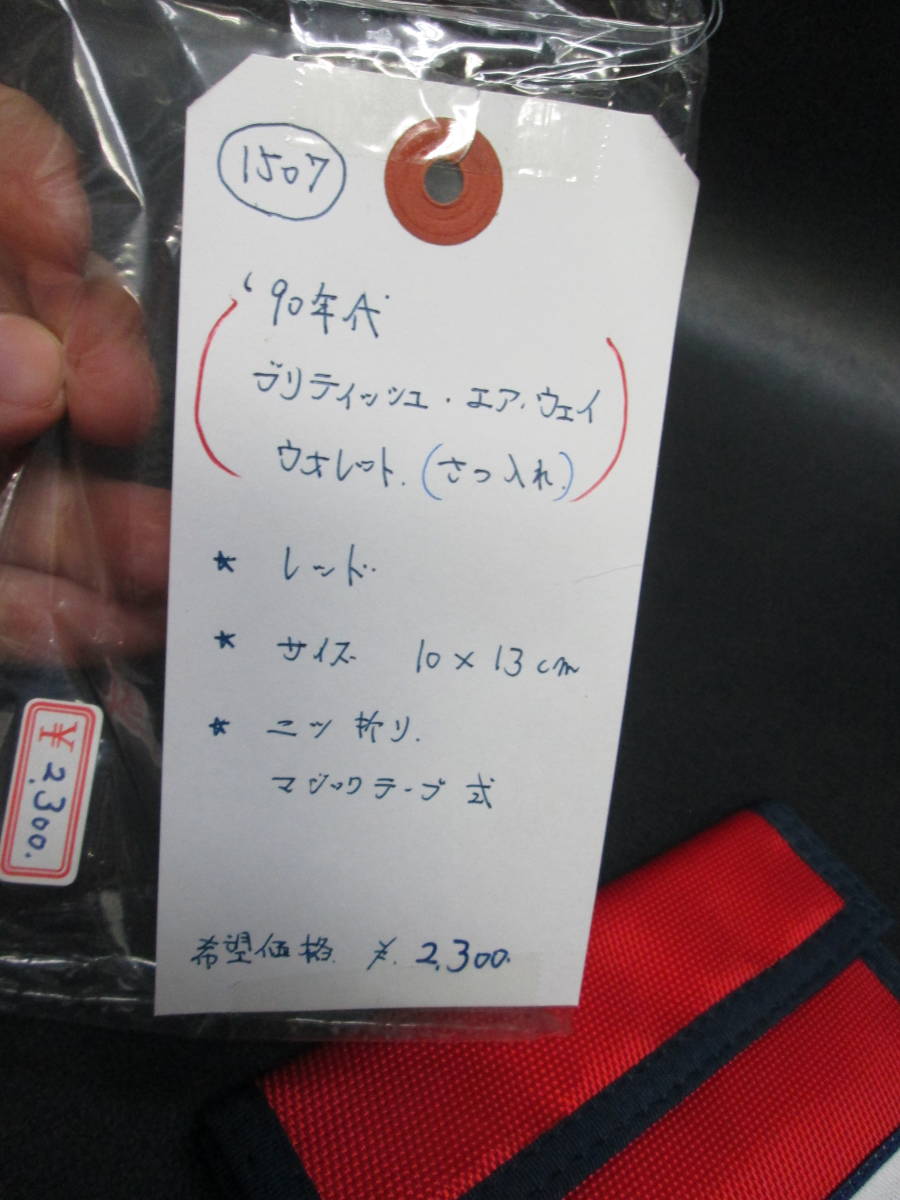 1507
'90年代
ブリティッシュ・エア・ウェイ
ウオレット.(さつ入れ.)
★ レッド.
★ サイズ 10×13cm
★ 二ツ折り.
マジックテープ式
希望価格. ¥.2,300.
¥2,300.